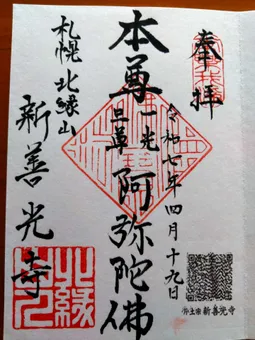 奉拝
令和七年四月十九日
浄土宗 新善光寺
本尊 一光三尊 阿弥陀佛
札幌 北縁山
新善光寺